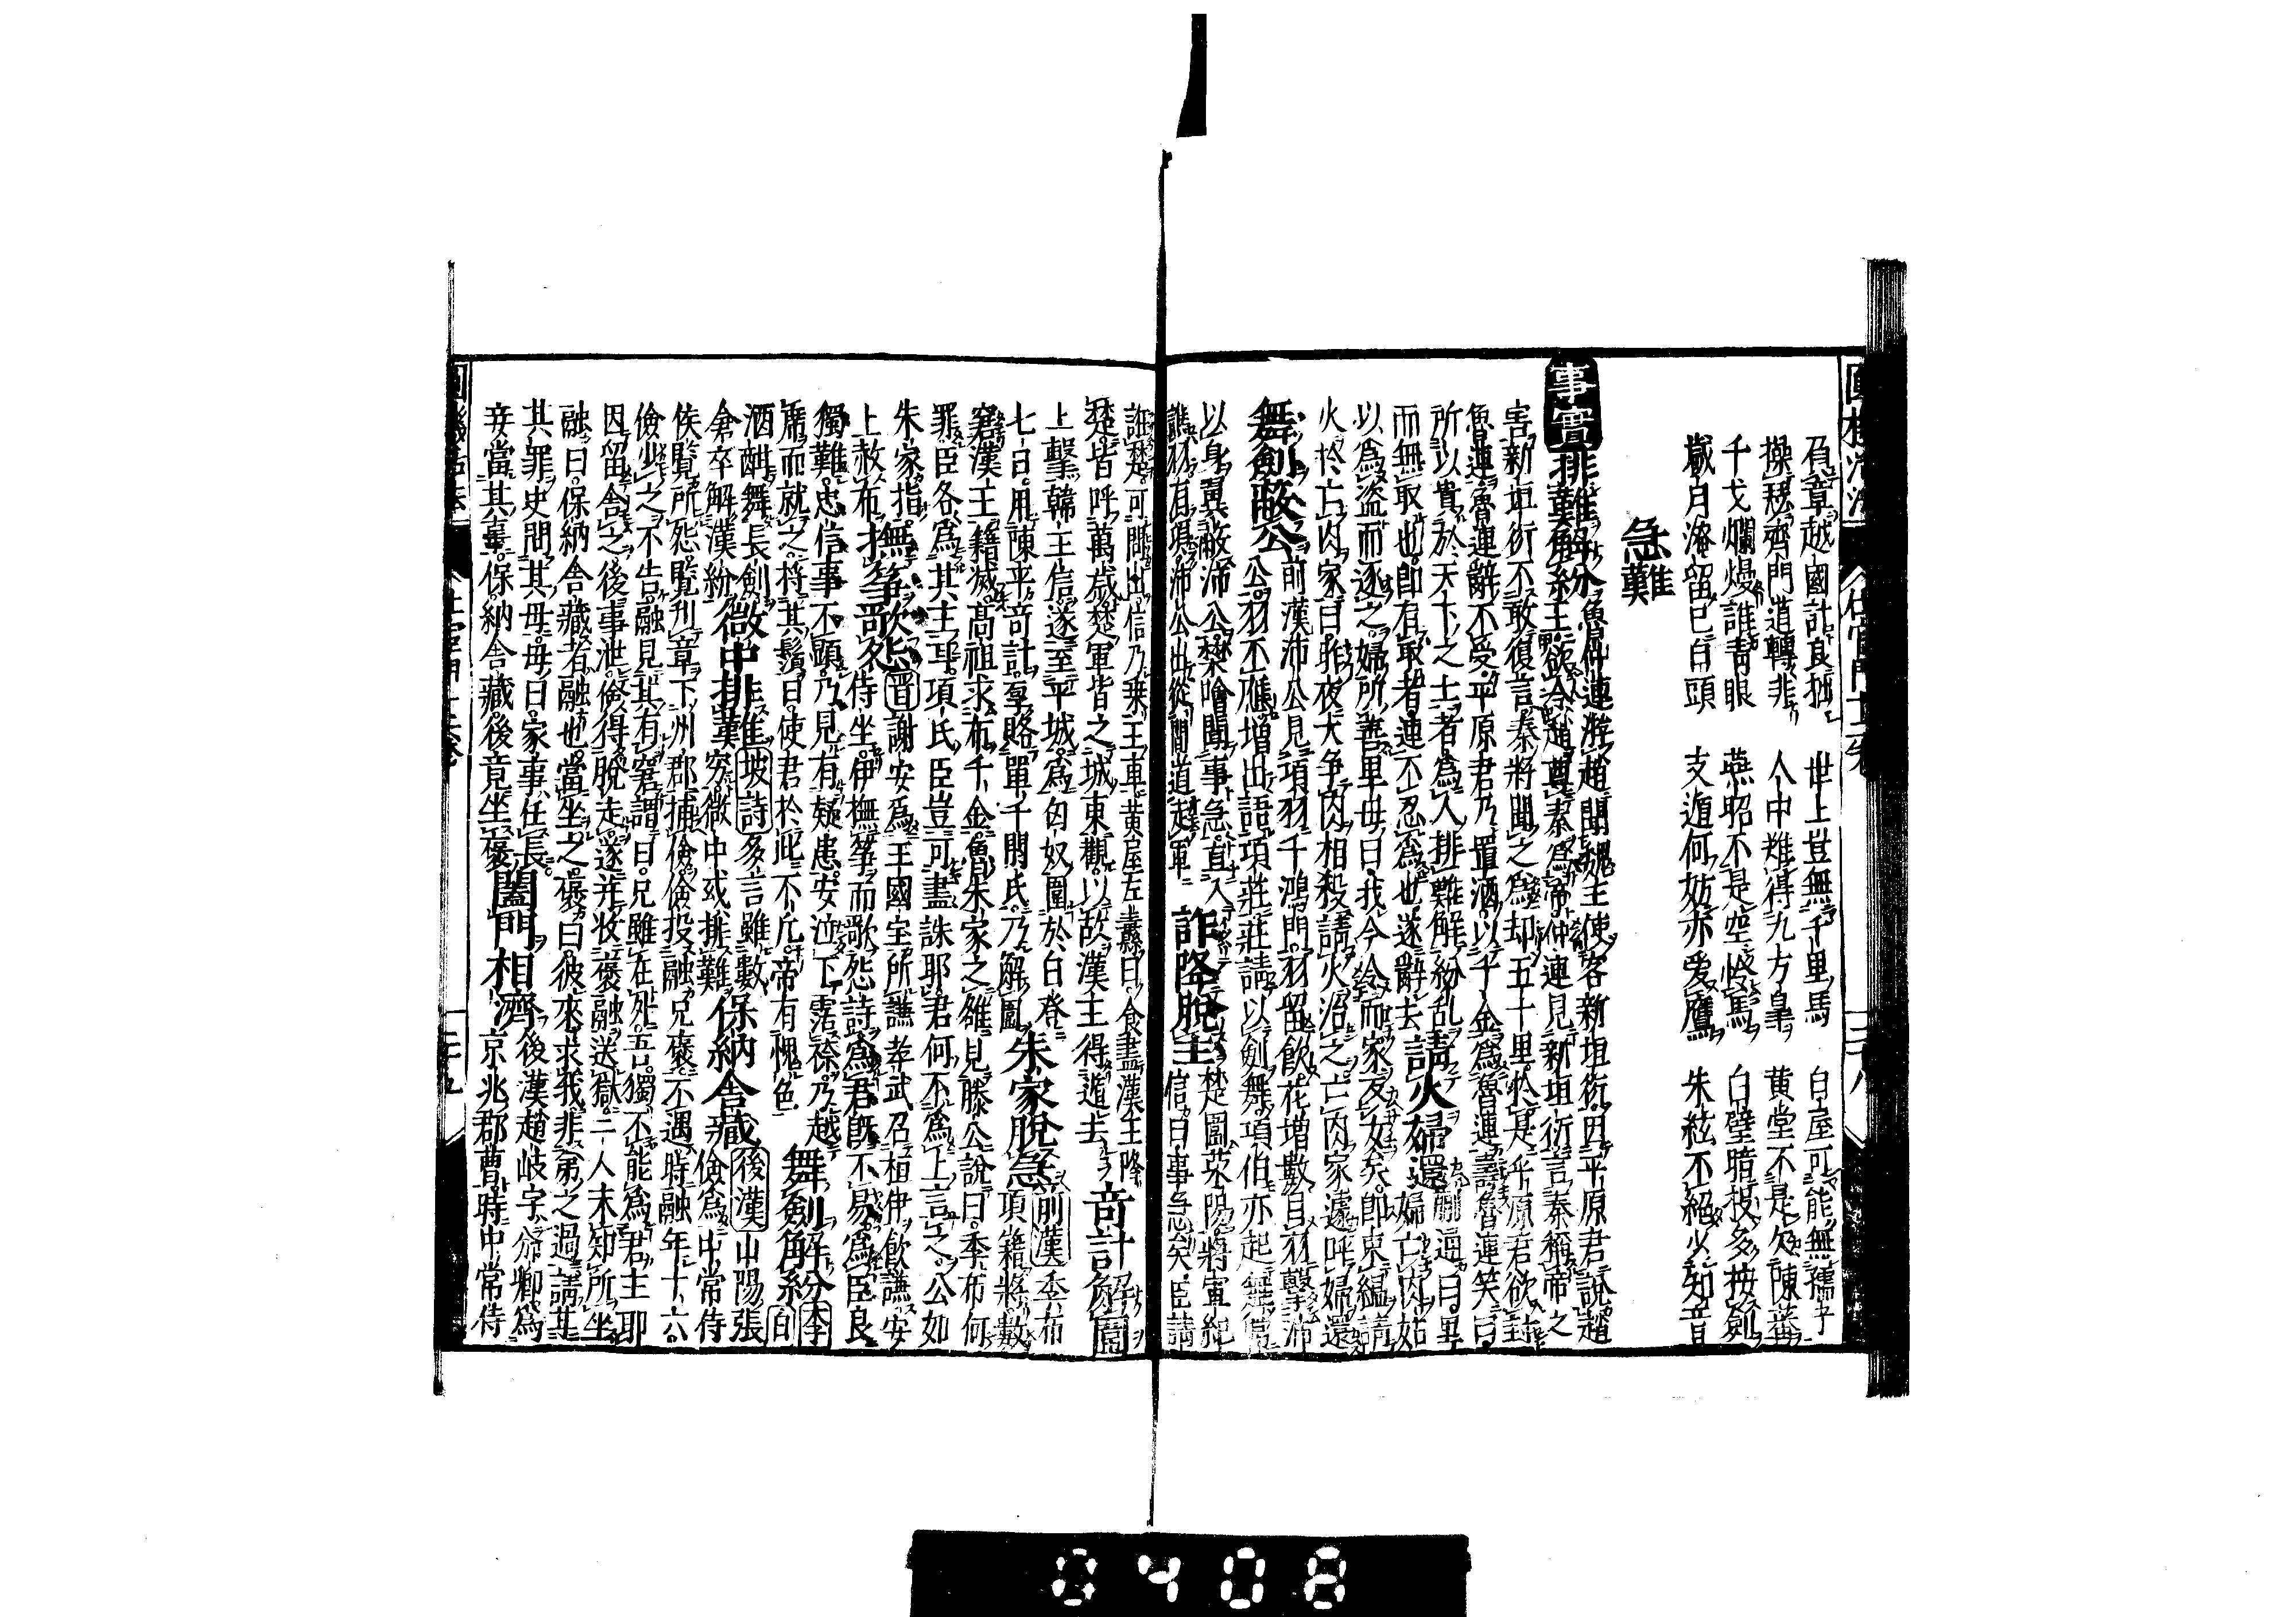 負章越國計良拙 世上豈無千里馬 白屋可能無孺子
操瑟齊門道轉非 人中難得九方皐 黄堂不是欠陳蕃
千戈爛熳誰青眼 燕昭不是空怜馬 白璧暗投多按劍
歲月淹留已白頭 支遁何妨亦愛鷹 朱絃不絕必知音
急難
事實 排難解紛 魯仲連游趙聞魏王使客新垣衍因平原君說趙
王欲令趙尊秦爲帝仲連見新垣衍言秦稱帝之
害新垣衍不敢復言秦將聞之爲却五十里於是平原君欲封
魯連魯連辭不受平原君乃置酒以千金爲魯連壽魯連笑曰
所以貴於天下之士者爲人排難解紛乱
而無取也即有取者連不忍爲也遂辭去 請火婦還 蒯通曰里婦亡肉姑
以爲盜而逐之婦所善里母曰我今令而家反女矣即束緼請
火於亡肉家曰昨夜犬争肉相殺請火治之亡肉家遽呼婦還
舞劍蔽公 前漢沛公見項羽千鴻門羽留飲范增數目羽擊沛
公羽不應增出語項莊莊請以劍舞項伯亦起舞
以身翼蔽沛公樊噲聞事急直入
譙羽有頃沛公出從間道走軍 詐降脫主 楚圍荥陽將軍紀
信曰事急矣臣請
誑楚可間出信乃乗王車黄屋左纛曰食盡漢王降
楚皆呼萬歳楚軍皆之城東觀以故漢王得遁去 奇計解圍
上擊韓王信遂至平城爲匈奴圍於白登
七日用陳平奇計厚賂單于閼氏乃解圍 朱家脫急 前漢 季布
項籍將數
窘漢王籍滅高祖求布千金魯朱家之雒見滕公說曰季布何
罪臣各爲其主耳項氏臣豈可盡誅耶君何不爲上言之公如
朱家指
上赦布 撫筝歌怨 晋 謝安爲王國宝所讒孝武召桓伊飮讌安
侍坐伊撫筝而歌怨詩爲君既不易爲臣良
獨難忠信事不顕乃見有疑患安泣下霑衿乃越
席而就之捋其鬚曰使君於此不凡帝有愧色 舞劍解紛 李白
酒酣舞長劍
倉卒解漢紛 微中排難 坡詩 多言雖數
窮微中或排難 保納舎藏 後漢 山陽張
儉爲中常侍
侯覧所怨覧刋章下州郡捕儉儉投融兄褒不遇時融年十六
儉少之不告融見其有窘謂曰兄雖在外吾獨不能爲君主耶
因留舎之後事泄儉得脫走遂并收褒融送獄二人未知所坐
融曰保納舎藏者融也當坐之褒曰彼來求我非弟之過請甘
其罪史問其母母曰家事任長
妾當其辜保納舎藏後竟坐褒 闔門相濟 後漢趙岐字邠卿爲
京兆郡曹時中常侍
0408